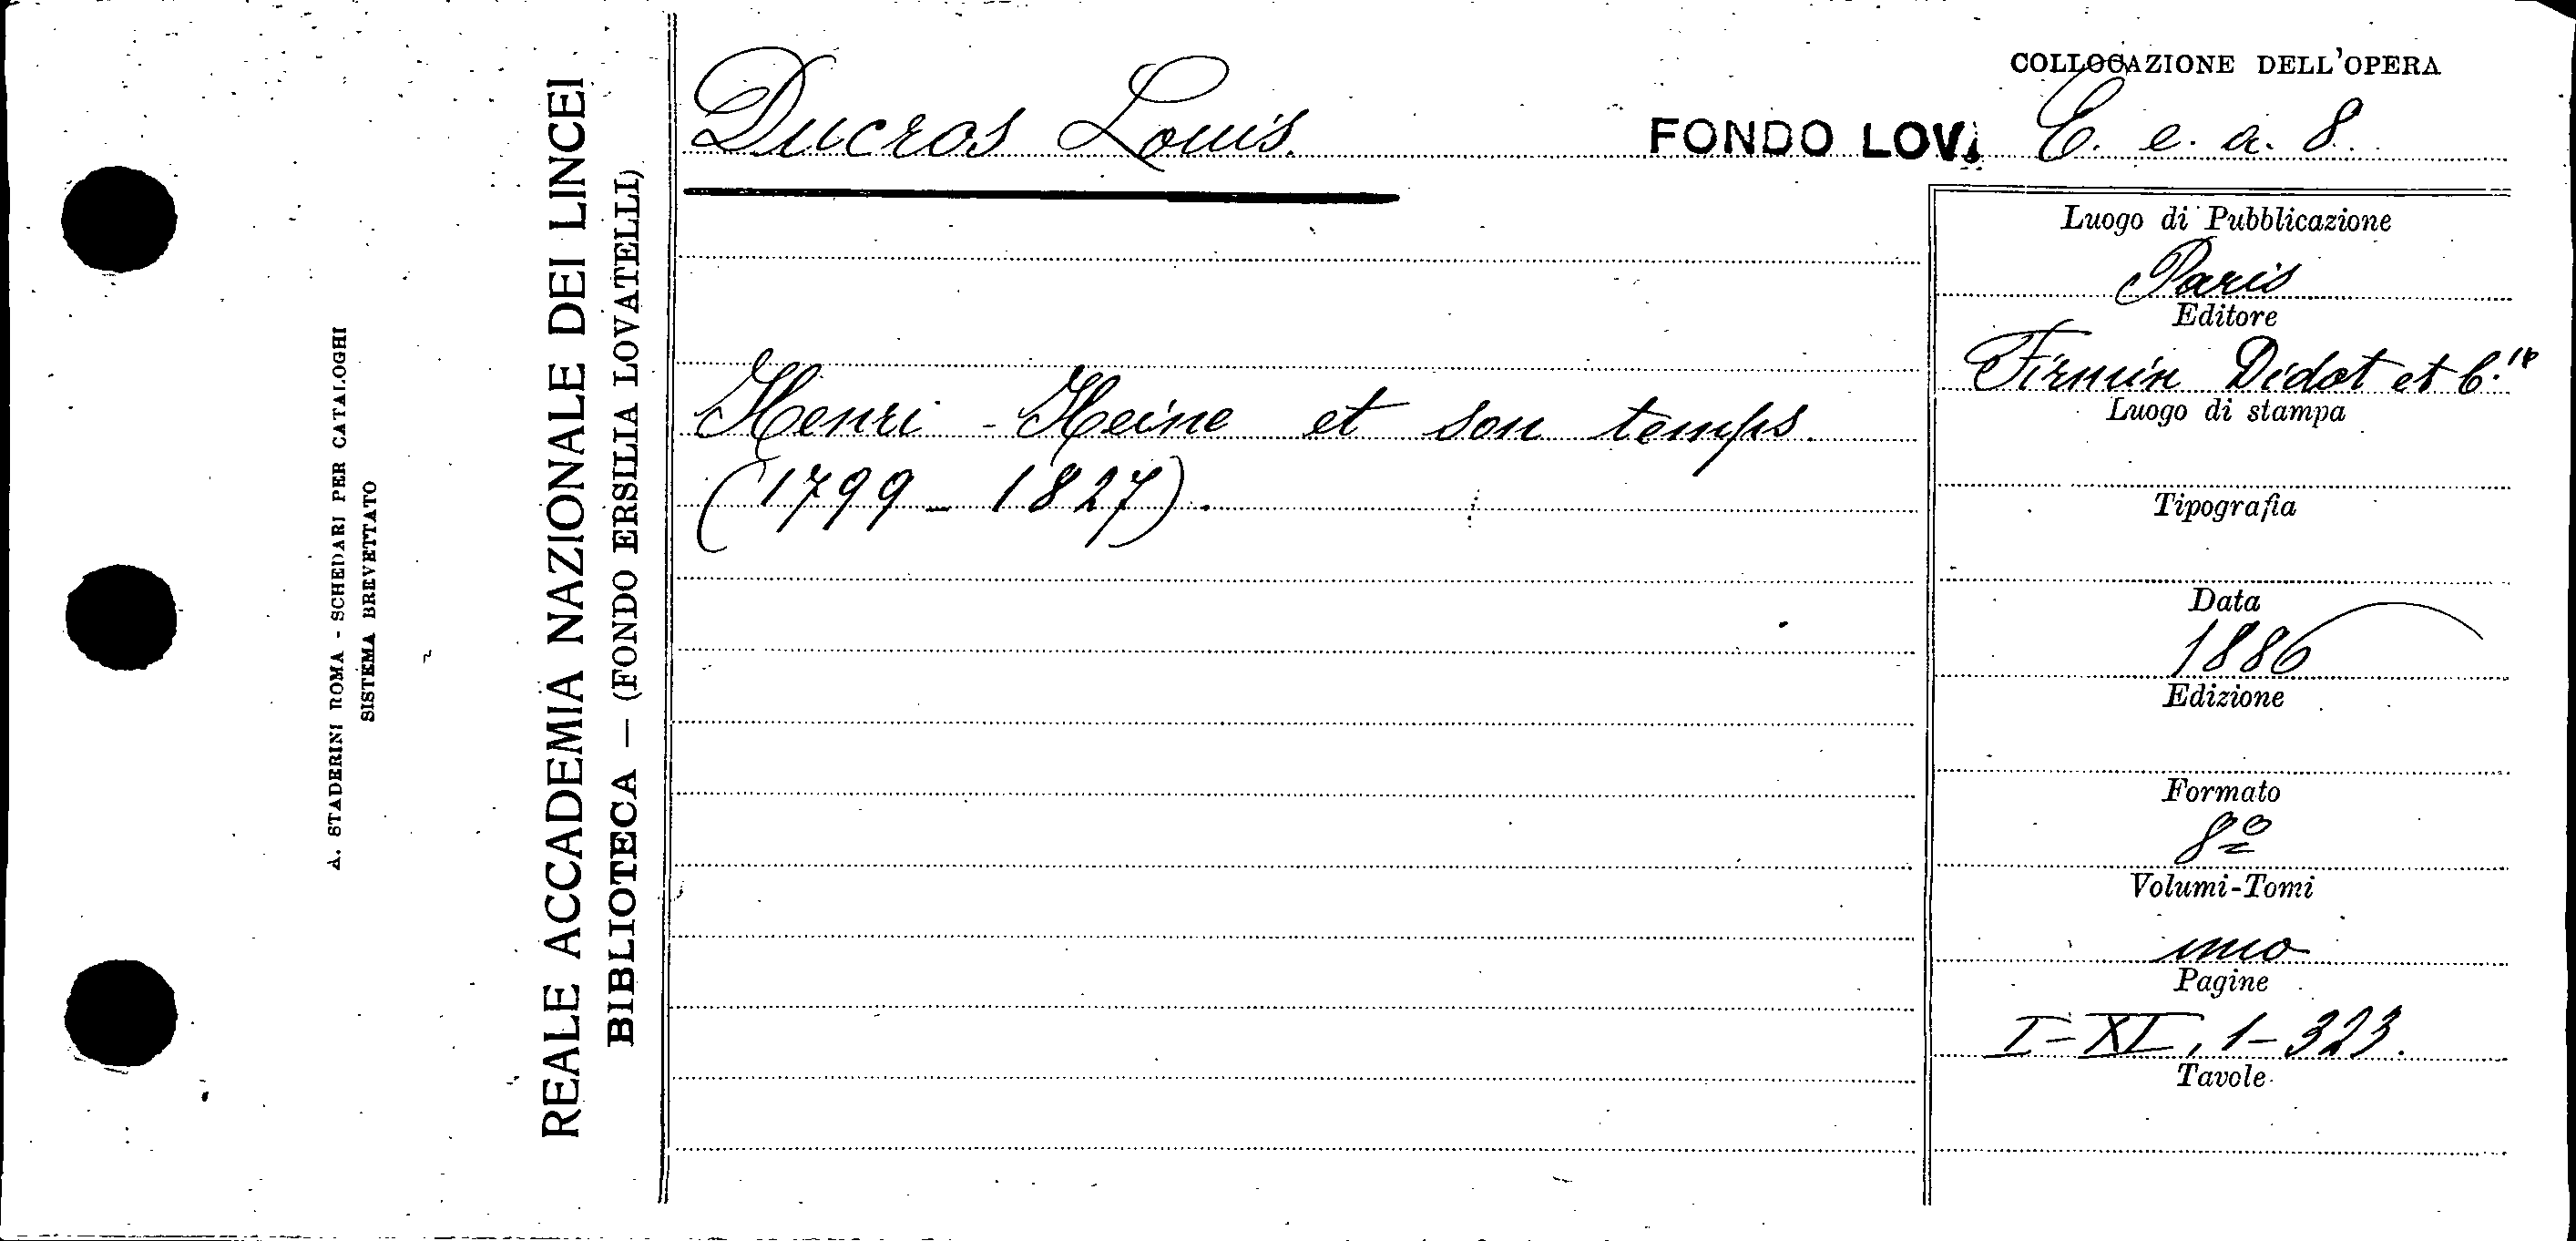 A. STADERINI ROMA - SCHEDARI PER CATALOGHI
SISTEMA BREVETTATO
REALE ACCADEMIA NAZIONALE DEI LINCEI
BIBLIOTECA — (FONDO ERSILIA LOVATELLI)
Ducros Louis.
COLLOCAZIONE DELL'OPERA
FONDO LOV. E. e. a. 8.
Henri - Heine et son temps.
(1799 - 1827).
Luogo di Pubblicazione
Paris
Editore
Firmin Didot et C.ie
Luogo di stampa
Tipografia
Data
1886
Edizione
Formato
8º
Volumi-Tomi
uno
Pagine
I-XI, 1-323.
Tavole